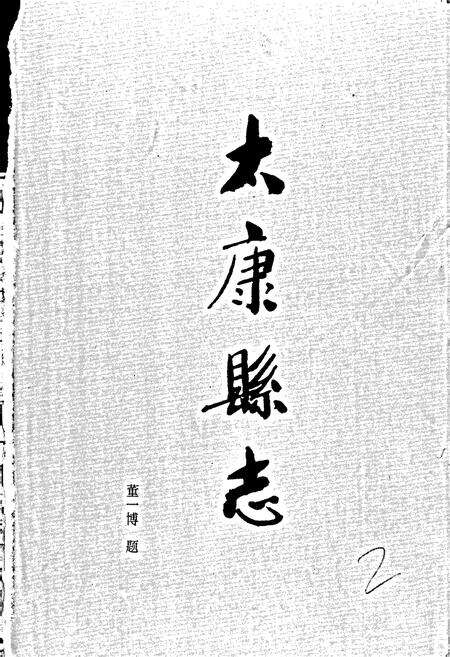 太康縣志
董一博 题
2